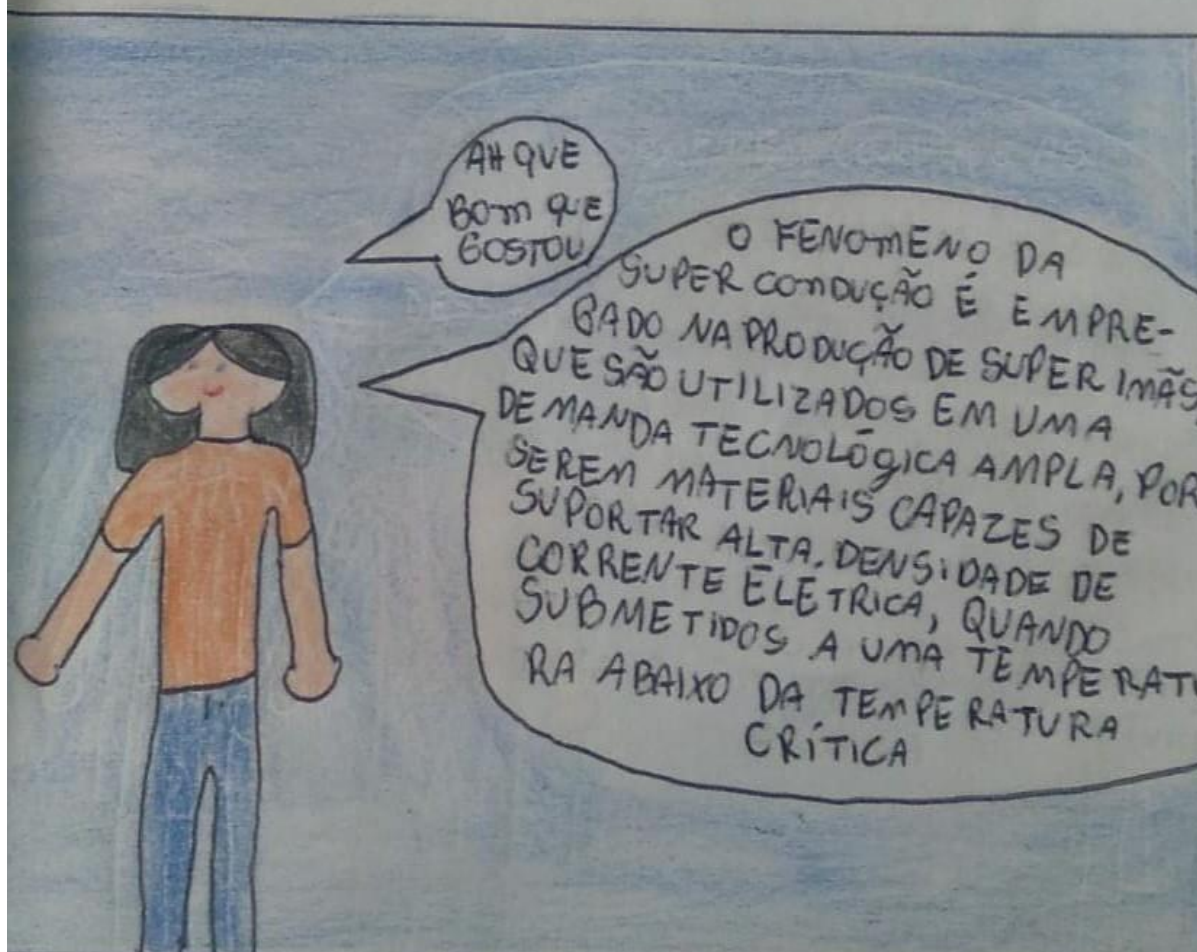 AH QUE
BOM QUE
GOSTOU
O FENOMENO DA
SUPER CONDUÇÃO É EMPRE-
GADO NA PRODUÇÃO DE SUPER IMÃS
QUE SÃO UTILIZADOS EM UMA
DEMANDA TECNOLÓGICA AMPLA, POR
SEREM MATERIAIS CAPAZES DE
SUPORTAR ALTA. DENSIDADE DE
CORRENTE ELETRICA, QUANDO
SUBMETIDOS A UMA TEMPERATU
RA ABAIXO DA TEMPERATURA
CRÍTICA